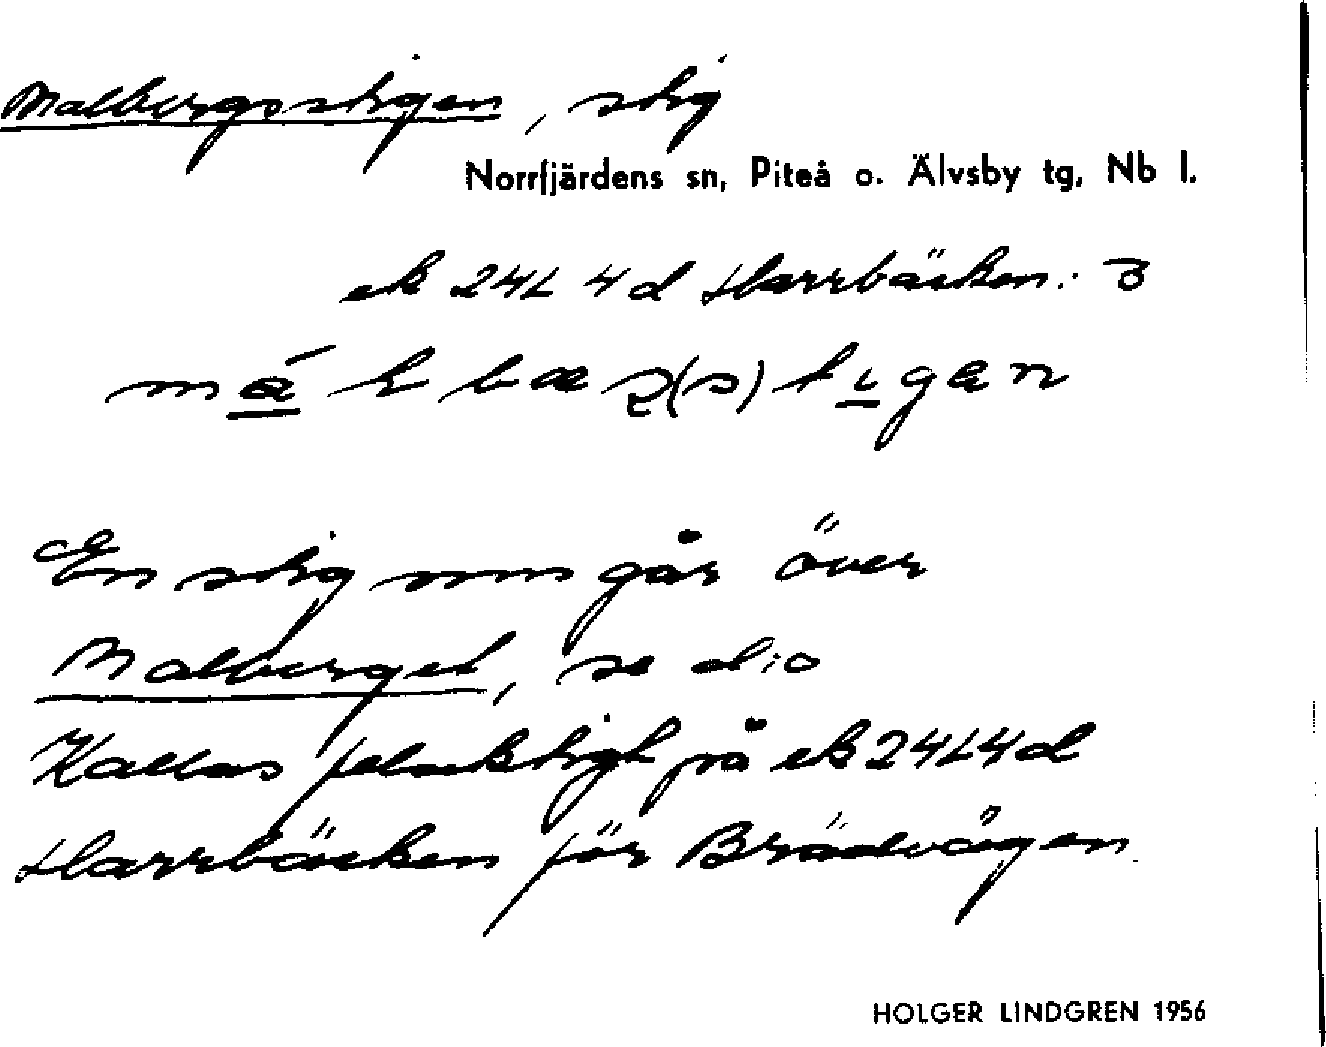 Malbergsstigen, stig
Norrfjärdens sn, Piteå o. Älvsby tg, Nb l.
ek 24L 4d Harrbäcken:
En stig som går över
Malberget, se d:o
Kallas felaktigt på ek 24L4d
Harrbäcken för Brädvägen.
HOLGER LINDGREN 1956